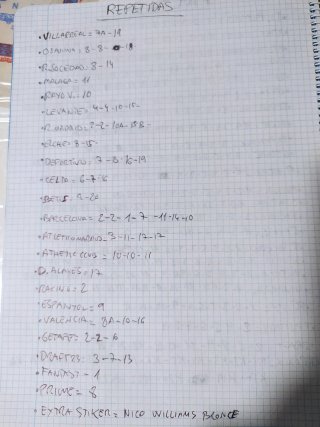 REPETIDAS
• VILLARREAL = 7A - 18
• OSASUNA = 8 - 8 - 18
• R. SOCIEDAD = 8 - 14
• MALAGA = 11
• RAYO V. = 10
• LEVANTE = 4 - 4 - 10 - 10 -
• R. MADRID = 2 - 2 - 10A - 15B -
• ELCHE = 8 - 15 -
• DEPORTIVO = 7 - 8 - 16 - 19
• CELTA = 6 - 7 - 8
• BETIS = 9 - 20
• BARCELONA = 2 - 2 - 1 - 7 - 11 - 14 - 10
• ATLETICO MADRID = 3 - 11 - 17 - 17
• ATHLETIC CLUB = 10 - 10 - 11
• D. ALAVES = 17
• RACING = 2
• ESPANYOL = 9
• VALENCIA = 8A - 10 - 16
• GETAFE = 2 - 2 - 10
• DRAFTS = 3 - 7 - 13
• FANTASY = 1
• PRIME = 8
• EXTRA STIKER = NICO WILLIAMS BRONCE